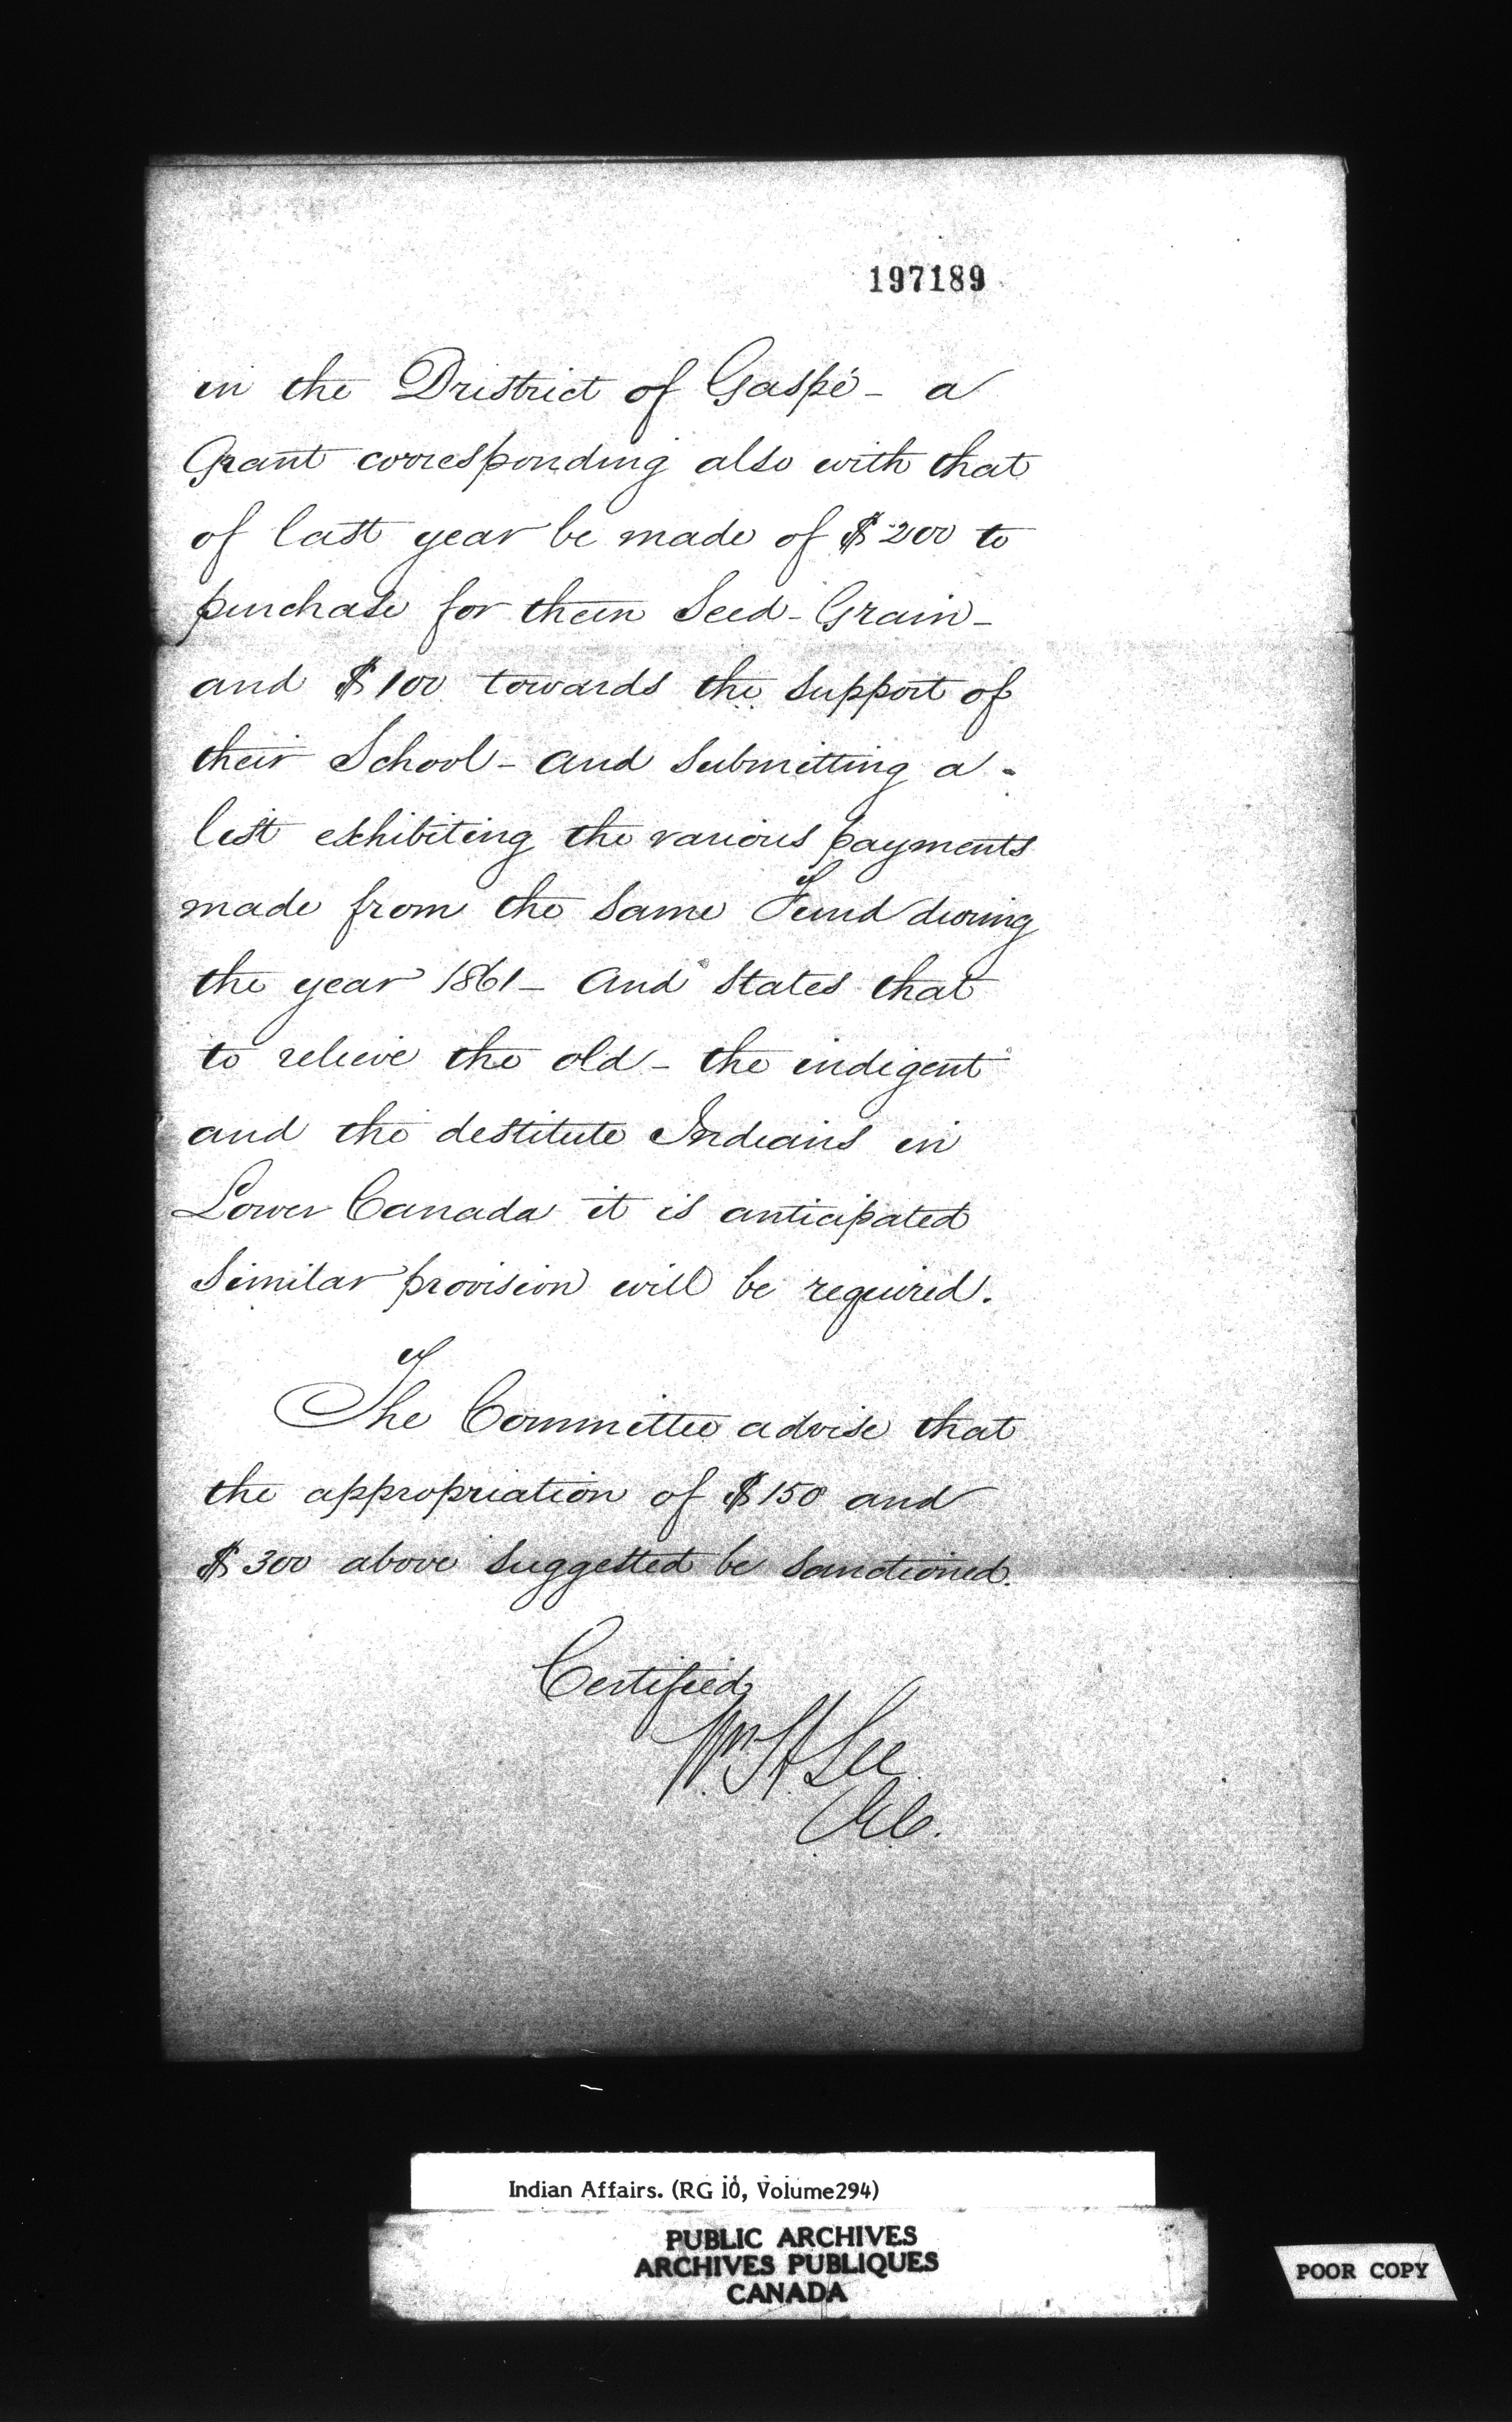 197189
in the District of Gaspé - a
Grant corresponding also with that
of last year be made of $200 to
purchase for them Seed-Grain -
and $100 towards the support of
their School - and submitting a -
list exhibiting the various payments
made from the same Fund during
the year 1861 - and states that
to relieve the old - the indigent
and the destitute Indians in
Lower Canada it is anticipated
Similar provision will be required.
The Committee advise that
the appropriation of $150 and
$300 above suggested be sanctioned.
Certified
Wm H Lee
Indian Affairs. (RG 10, Volume294)
PUBLIC ARCHIVES
ARCHIVES PUBLIQUES
CANADA
POOR COPY